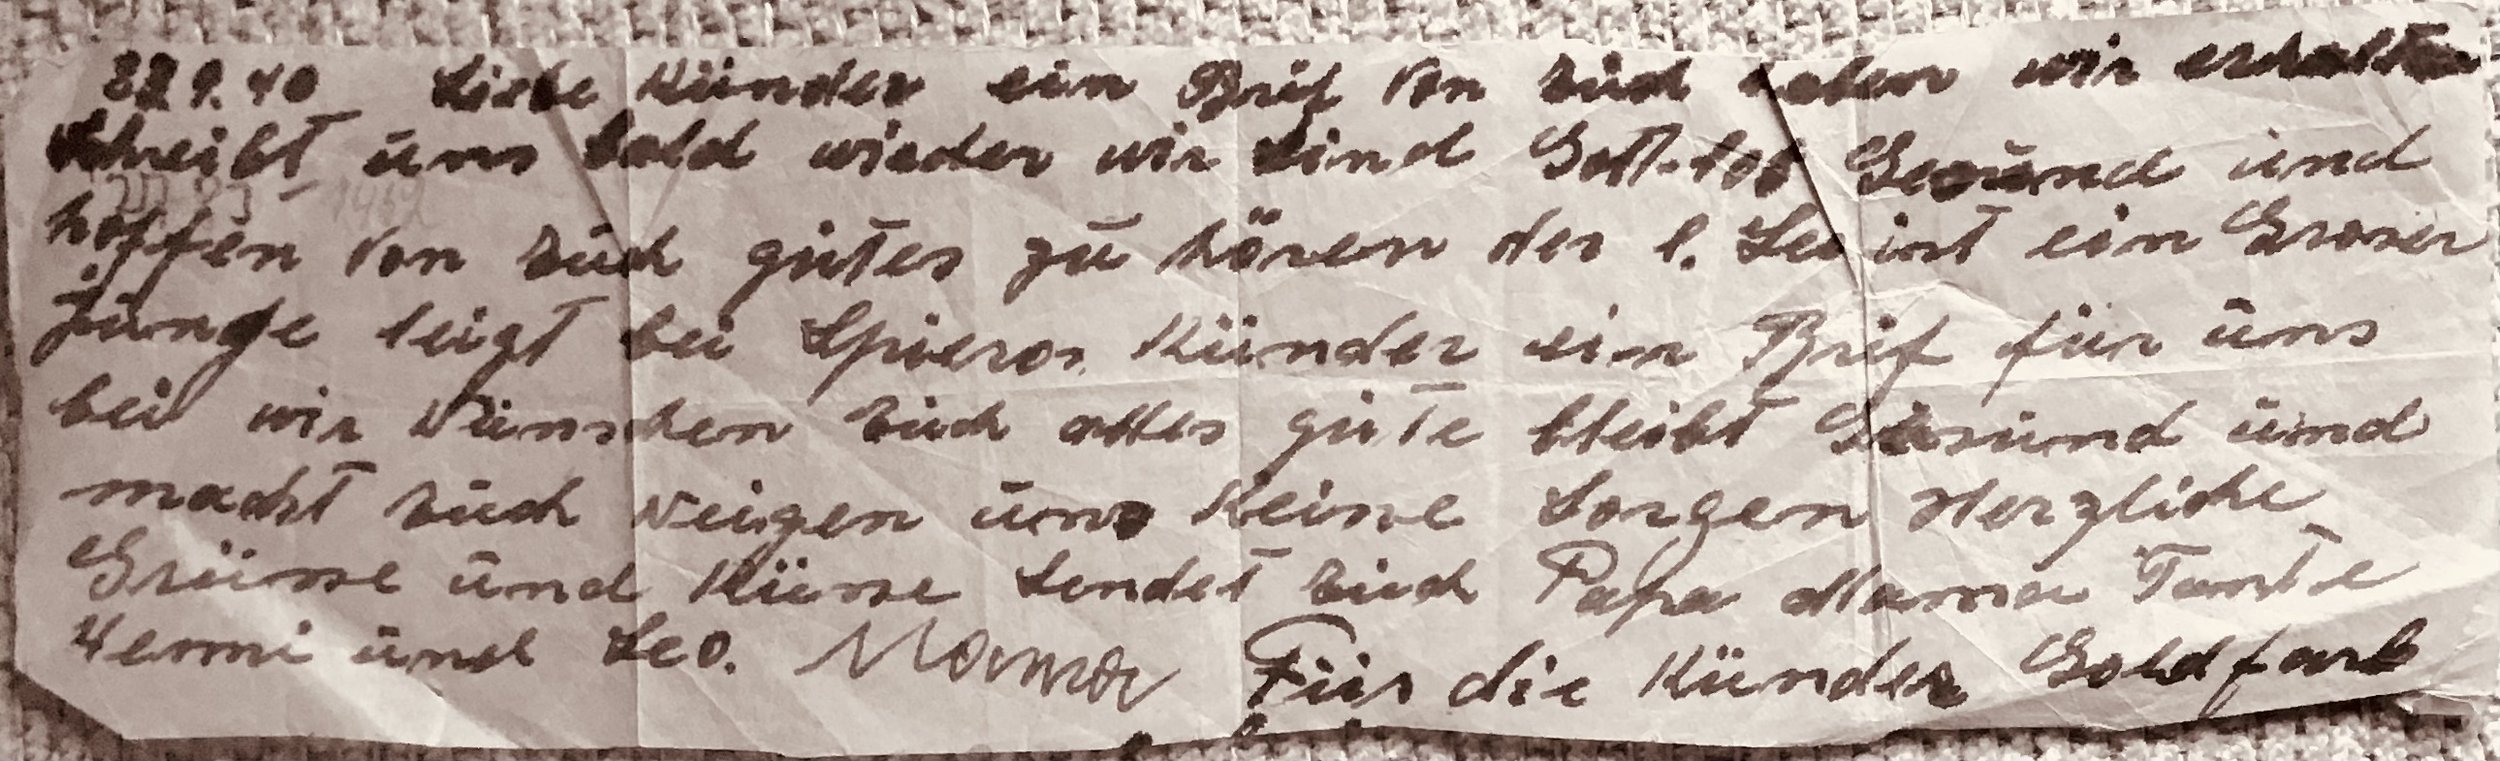 9.40 Liebe Künder ein Brif von Eüch haben wir erhalten
Schreibt üns bald wieder wir sind Gott-lob Gesünd ünd
hoffen von Eüch gütes zü hören der l. Leo ist ein Groser
Jünge leigt bei Spieros Künder ein Brif für üns
bei wir wünschen Eüch alles güte bleibt Gesünd ünd
macht Eüch weigen üns keine Sorgen Herzliche
Grüsse ünd Küsse sendet Eüch Papa Mama Tante
Hermi ünd Leo. Mama Für die Künder Goldfarb